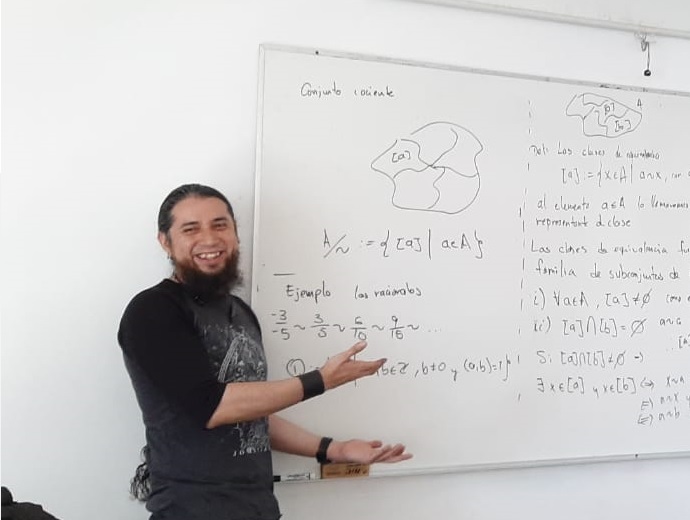 Conjunto cociente
[a]
A/~ := { [a] | a∈A }
Ejemplo los racionales
-3/-5 ~ 3/5 ~ 6/10 ~ 9/15 ~ ...
① b∈Z, b≠0 y (a,b)=1}
A
[b]
Def: Las clases de equivalencia
[a] := {x∈A | a~x,
al elemento a∈A lo llamaremos
representante d clase
Las clases de equivalencia
familia de subconjuntos de
i) ∀a∈A, [a]≠∅
ii) [a]∩[b]=∅
Si [a]∩[b]≠∅ →
∃ x∈[a] y x∈[b] ⇔ x~a
a~x y
a~b